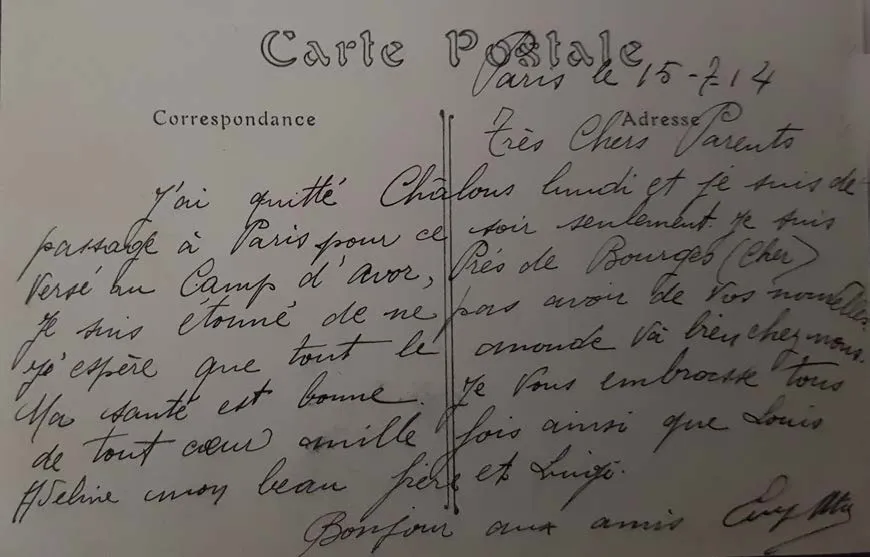 Carte Postale
Paris le 15-7-14
Correspondance
Adresse
Très Chers Parents
J'ai quitté Châlons lundi et je suis de
passage à Paris pour ce soir seulement. Je suis
versé au Camp d'Avor, Près de Bourges (Cher)
Je suis étonné de ne pas avoir de vos nouvelles.
J'espère que tout le monde va bien chez nous.
Ma santé est bonne. Je vous embrasse tous
de tout cœur mille fois ainsi que Louis
Adeline mon beau frère et Luigi.
Bonjour aux amis